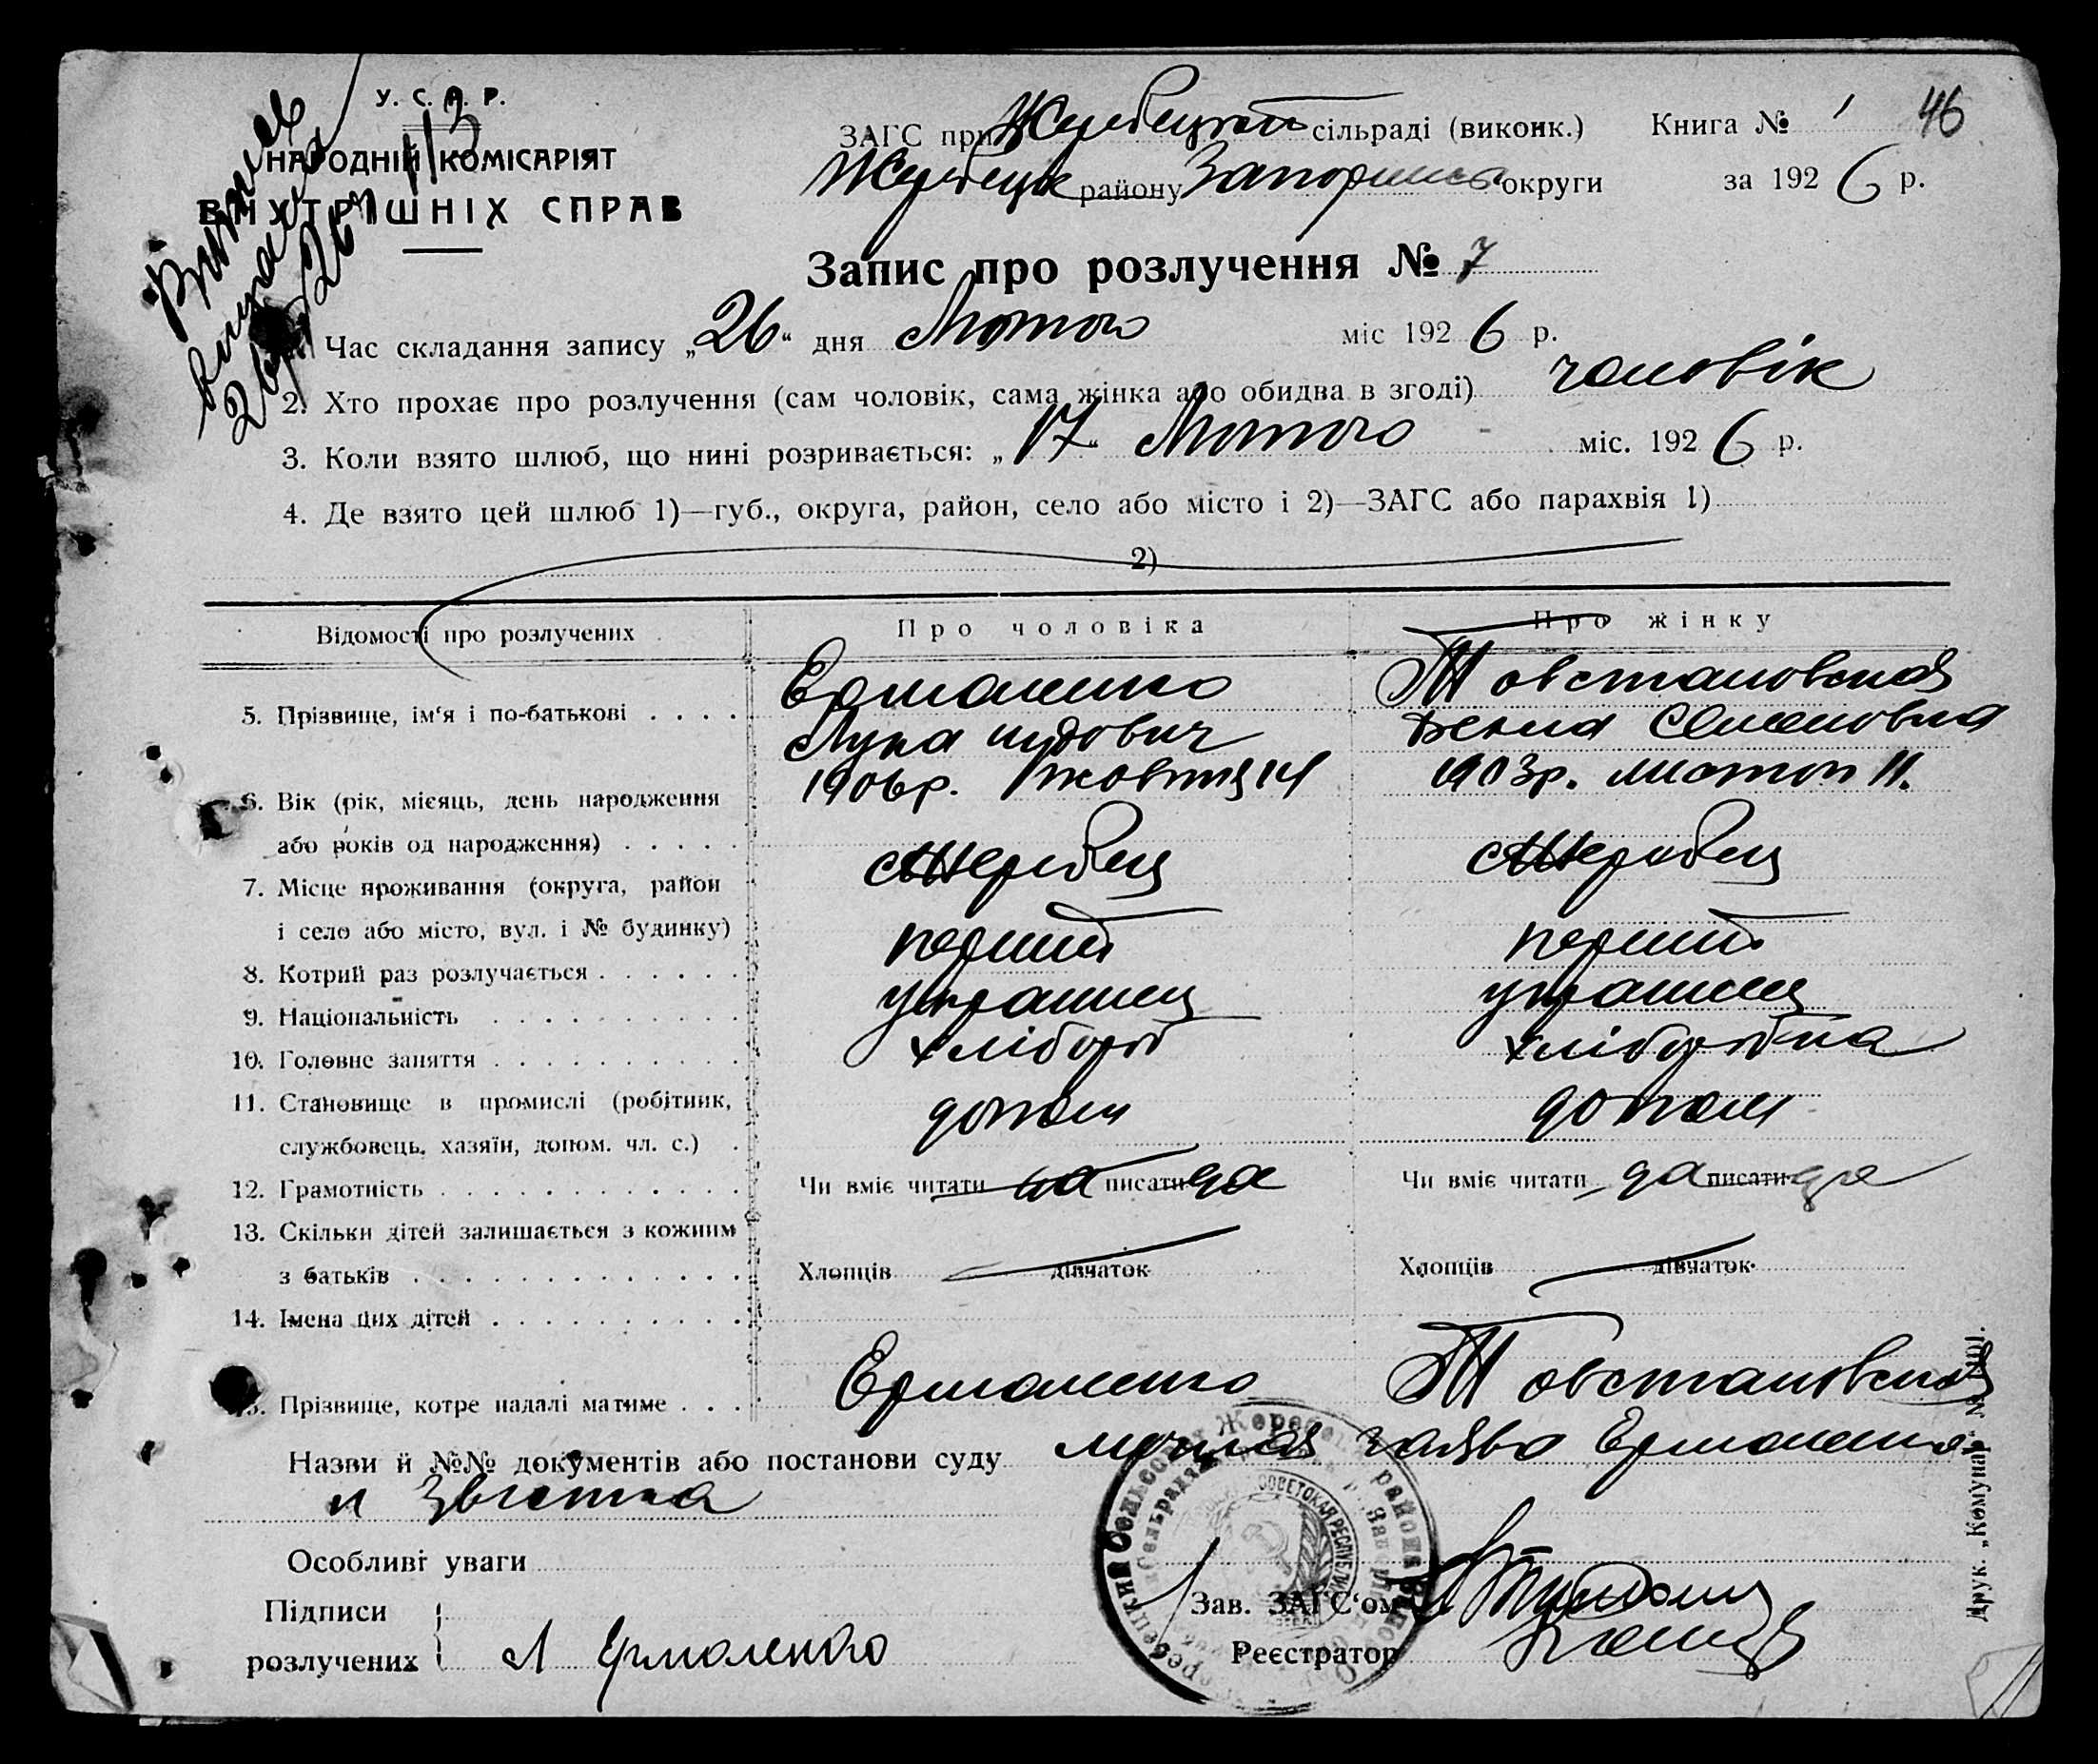 У. С. Р. Р.
НАРОДНІЙ КОМІСАРІЯТ
ВНУТРІШНІХ СПРАВ
ЗАГС при Жеребецкой сільраді (виконк.) Книга № 1 46
Жеребецк району Запорижск округи за 1926 р.
Запис про розлучення № 7
Час складання запису „26“ дня Лютого міс 1926 р.
2. Хто прохає про розлучення (сам чоловік, сама жінка або обидва в згоді) чоловік
3. Коли взято шлюб, що нині розривається: „17“ Лютого міс. 1926 р.
4. Де взято цей шлюб 1)—губ., округа, район, село або місто і 2)—ЗАГС або парахвія 1)
2)
Відомості про розлучених Про чоловіка Про жінку
5. Прізвище, ім'я і по-батькові Ермоленко Товстановская
Лука Текла Семеновна
6. Вік (рік, місяць, день народження 1906р. Жовтня 14 1903р. листоп 11.
або років од народження)
7. Місце проживання (округа, район Жеребец Жеребец
і село або місто, вул. і № будинку)
8. Котрий раз розлучається перший перший
9. Національність украинец украинец
10. Головне заняття хлібороб хліборобка
11. Становище в промислі (робітник, допом допом
службовець, хазяїн, допом. чл. с.)
12. Грамотність Чи вміє читати да писати да Чи вміє читати да писати да
13. Скільки дітей залишається з кожним
з батьків Хлопців дівчаток Хлопців дівчаток
14. Імена цих дітей
15. Прізвище, котре надалі матиме Ермоленко Товстановская
Назви й №№ документів або постанови суду заява Ермоленко
и
Особливі уваги
Підписи
розлучених Л Ермоленко
Зав. ЗАГС'ом
Реєстратор
Друк. „Комунар“